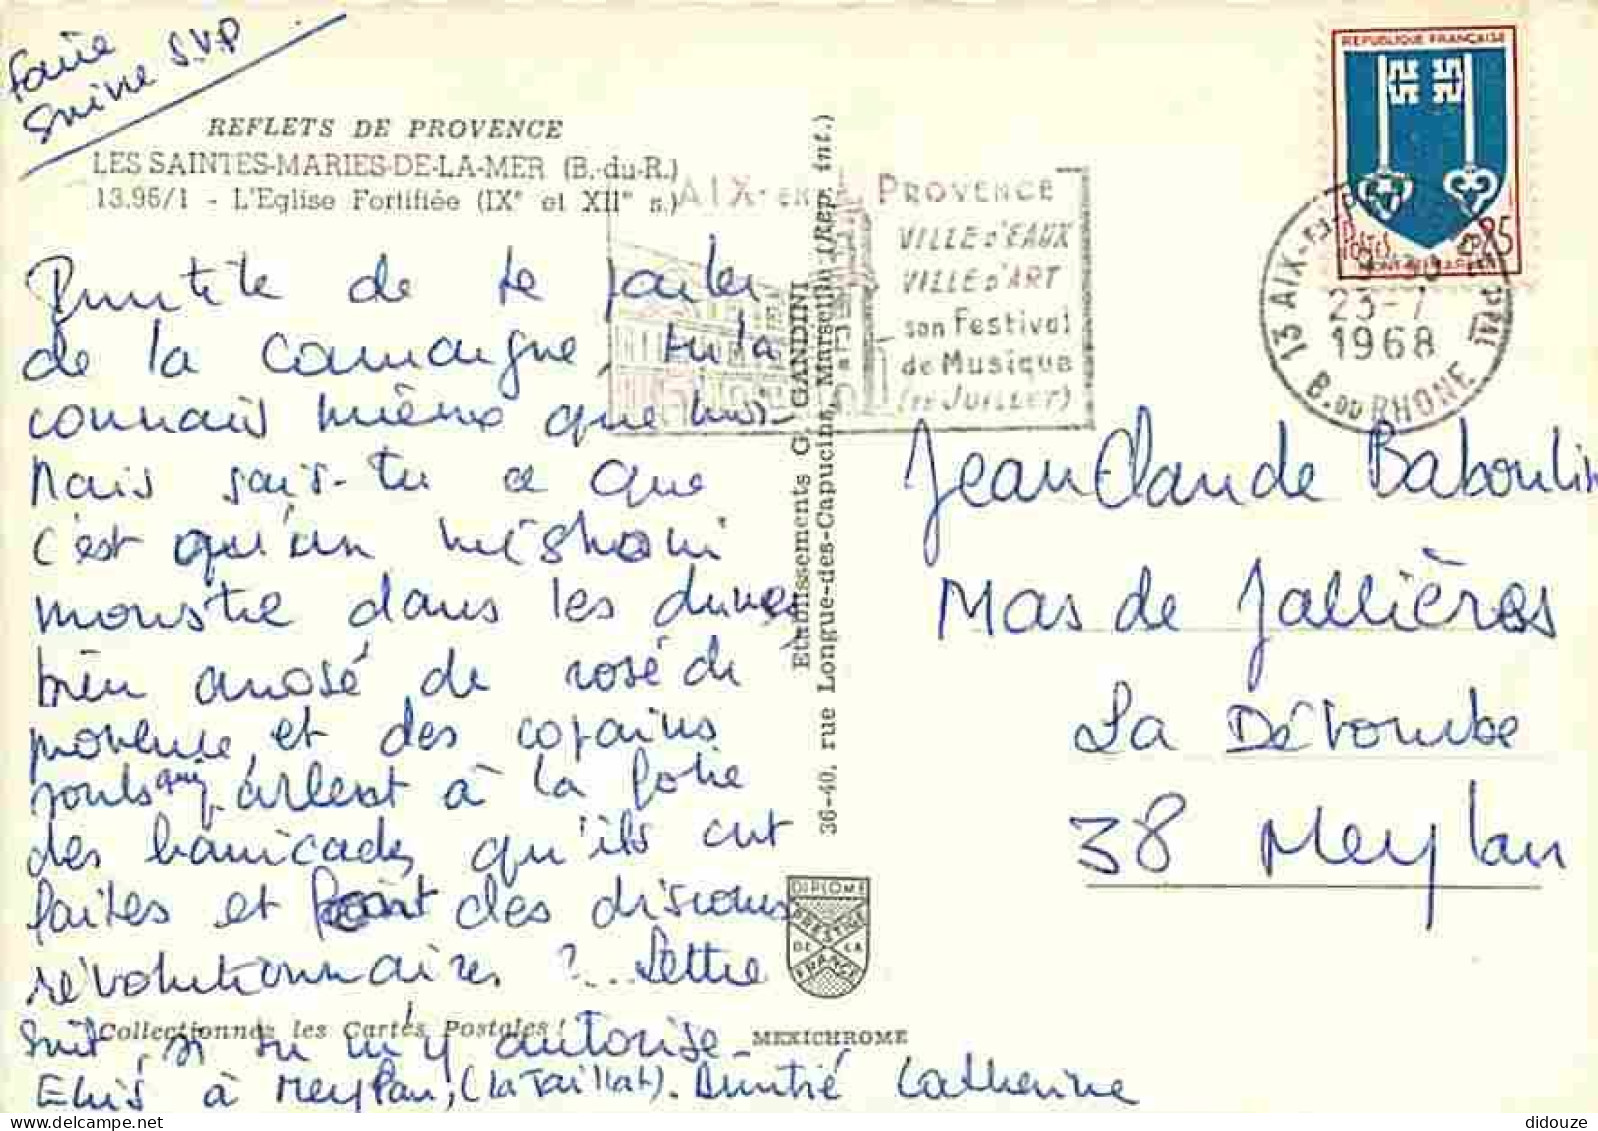 Faire
Suivre S.V.P
REFLETS DE PROVENCE
LES SAINTES-MARIES-DE-LA-MER (B.-du-R.)
13.95/1 - L'Eglise Fortifiée (IXe et XIIe s.)
de te parler
de la Camargue, tu la
connais mieux que moi
Mais sais-tu ce que
c'est qu'un méshoui
monstre dans les dunes
bien arrosé de rosé de
provence, et des copains
qui parlent à la folie
des barricades qu'ils ont
faites et font des discours
révolutionnaires ?... Lettre
suit, si tu m'y autorise
à Meylan, (La Taillat). Amitié Catherine
Collectionnez les Cartes Postales !
Etablissements G. GANDINI
36-40, rue Longue-des-Capucins, Marseille (Rep. int.)
DIPLOME
PRESTIGE
DE LA
FRANCE
MEXICHROME
AIX-EN PROVENCE
VILLE d'EAUX
VILLE d'ART
son Festival
de Musique
(JUILLET)
REPUBLIQUE FRANÇAISE
POSTES
MONT-DE-MARSAN
13 AIX-EN-PROVENCE PPAL
23-7
1968
B. DU RHONE
Jean Claude Baboulin
Mas de Jallières
La Dévombe
38 Meylan
didouze